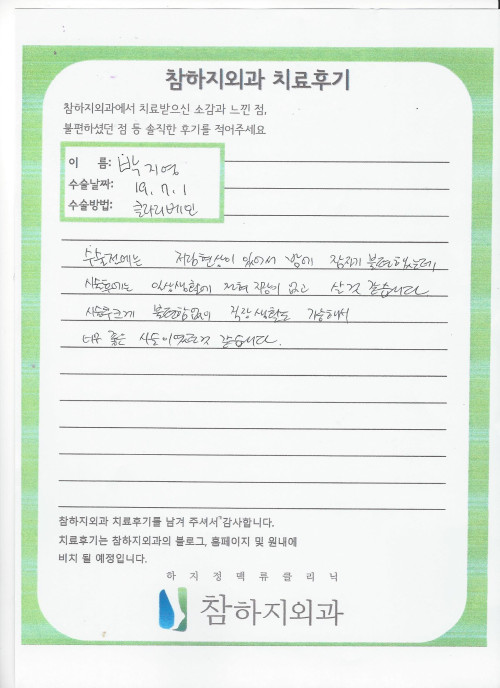 참하지외과 치료후기
참하지외과에서 치료받으신 소감과 느낀 점,
불편하셨던 점 등 솔직한 후기를 적어주세요
이 름: 박지영
수술날짜: 19. 7. 1
수술방법: 클라리베인
수술전에는 저림현상이 있어서 밤에 잠자기 불편했는데,
시술후에는 일상생활에 전혀 지장이 없고 살 것 같습니다.
시술후 크게 불편함없이 직장생활도 가능해서
너무 좋은 시술이었던것 같습니다.
참하지외과 치료후기를 남겨 주셔서 감사합니다.
치료후기는 참하지외과의 블로그, 홈페이지 및 원내에
비치 될 예정입니다.
하지정맥류클리닉
참하지외과